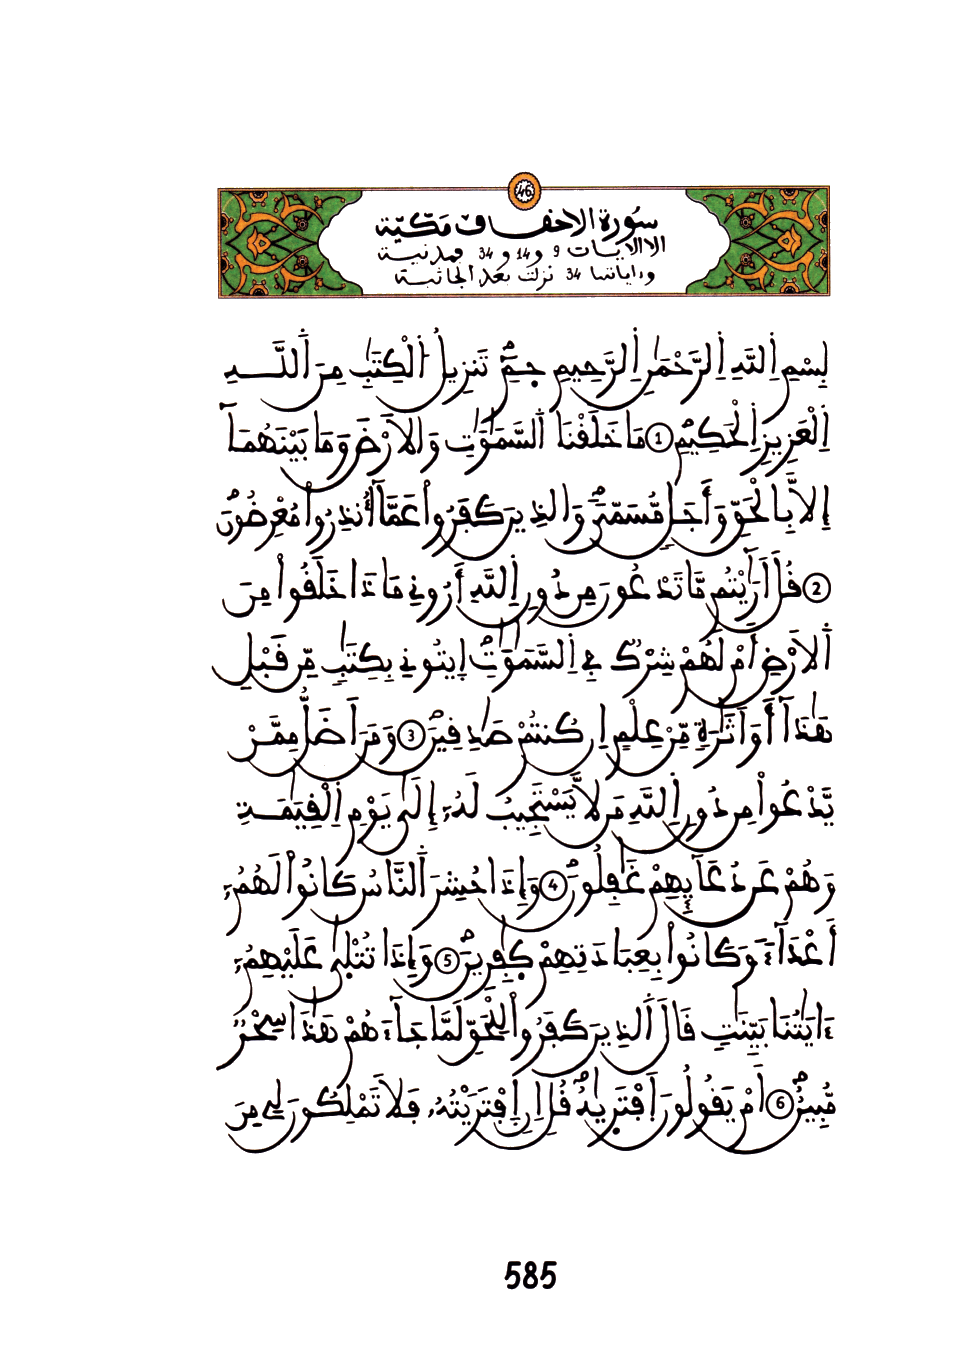 46
سُورة الاحقاف مَكّيّة
الا الايات 9 و14 و 34 فمدنية
وءاياتها 34 نزلت بعد الجاثية
بِسْمِ اِللَّهِ اِلرَّحْمَٰنِ اِلرَّحِيمِ حَمِٓ تَنزِيلُ اُلْكِتَٰبِ مِنَ اَللَّهِ
اِلْعَزِيزِ اِلْحَكِيمِ 1 مَا خَلَقْنَا اَلسَّمَٰوَٰتِ وَالَارْضَ وَمَا بَيْنَهُمَآ
إِلَّا بِالْحَقِّ وَأَجَلٖ مُّسَمّىٗ وَالذِينَ كَفَرُواْ عَمَّآ أُنذِرُواْ مُعْرِضُونَ
2 قُلَ اَرَآيْتُم مَّا تَدْعُونَ مِن دُونِ اِللَّهِ أَرُونِي مَاذَا خَلَقُواْ مِنَ
اَلَارْضِ أَمْ لَهُمْ شِرْكٞ فِي اِلسَّمَٰوَٰتِ اِيتُونِي بِكِتَٰبٖ مِّن قَبْلِ
هَٰذَآ أَوَ اَثَٰرَةٖ مِّنْ عِلْمٍ اِن كُنتُمْ صَٰدِقِينَ 3 وَمَنَ اَضَلُّ مِمَّنْ
يَّدْعُواْ مِن دُونِ اِللَّهِ مَن لَّا يَسْتَجِيبُ لَهُۥٓ إِلَىٰ يَوْمِ اِلْقِيَٰمَةِ
وَهُمْ عَن دُعَآئِهِمْ غَٰفِلُونَ 4 وَإِذَا حُشِرَ اَلنَّاسُ كَانُواْ لَهُمُۥٓ
أَعْدَآءٗ وَكَانُواْ بِعِبَادَتِهِمْ كٰفِرِينَ 5 وَإِذَا تُتْلَىٰ عَلَيْهِمُۥٓ
ءَايَٰتُنَا بَيِّنَٰتٖ قَالَ اَلذِينَ كَفَرُواْ لِلْحَقِّ لَمَّا جَآءَهُمْ هَٰذَا سِحْرٞ
مُّبِينٌ 6 اَمْ يَقُولُونَ اَفْتَرِيٰهُ قُلِ اِنِ اِفْتَرَيْتُهُۥ فَلَا تَمْلِكُونَ لِي مِنَ
585